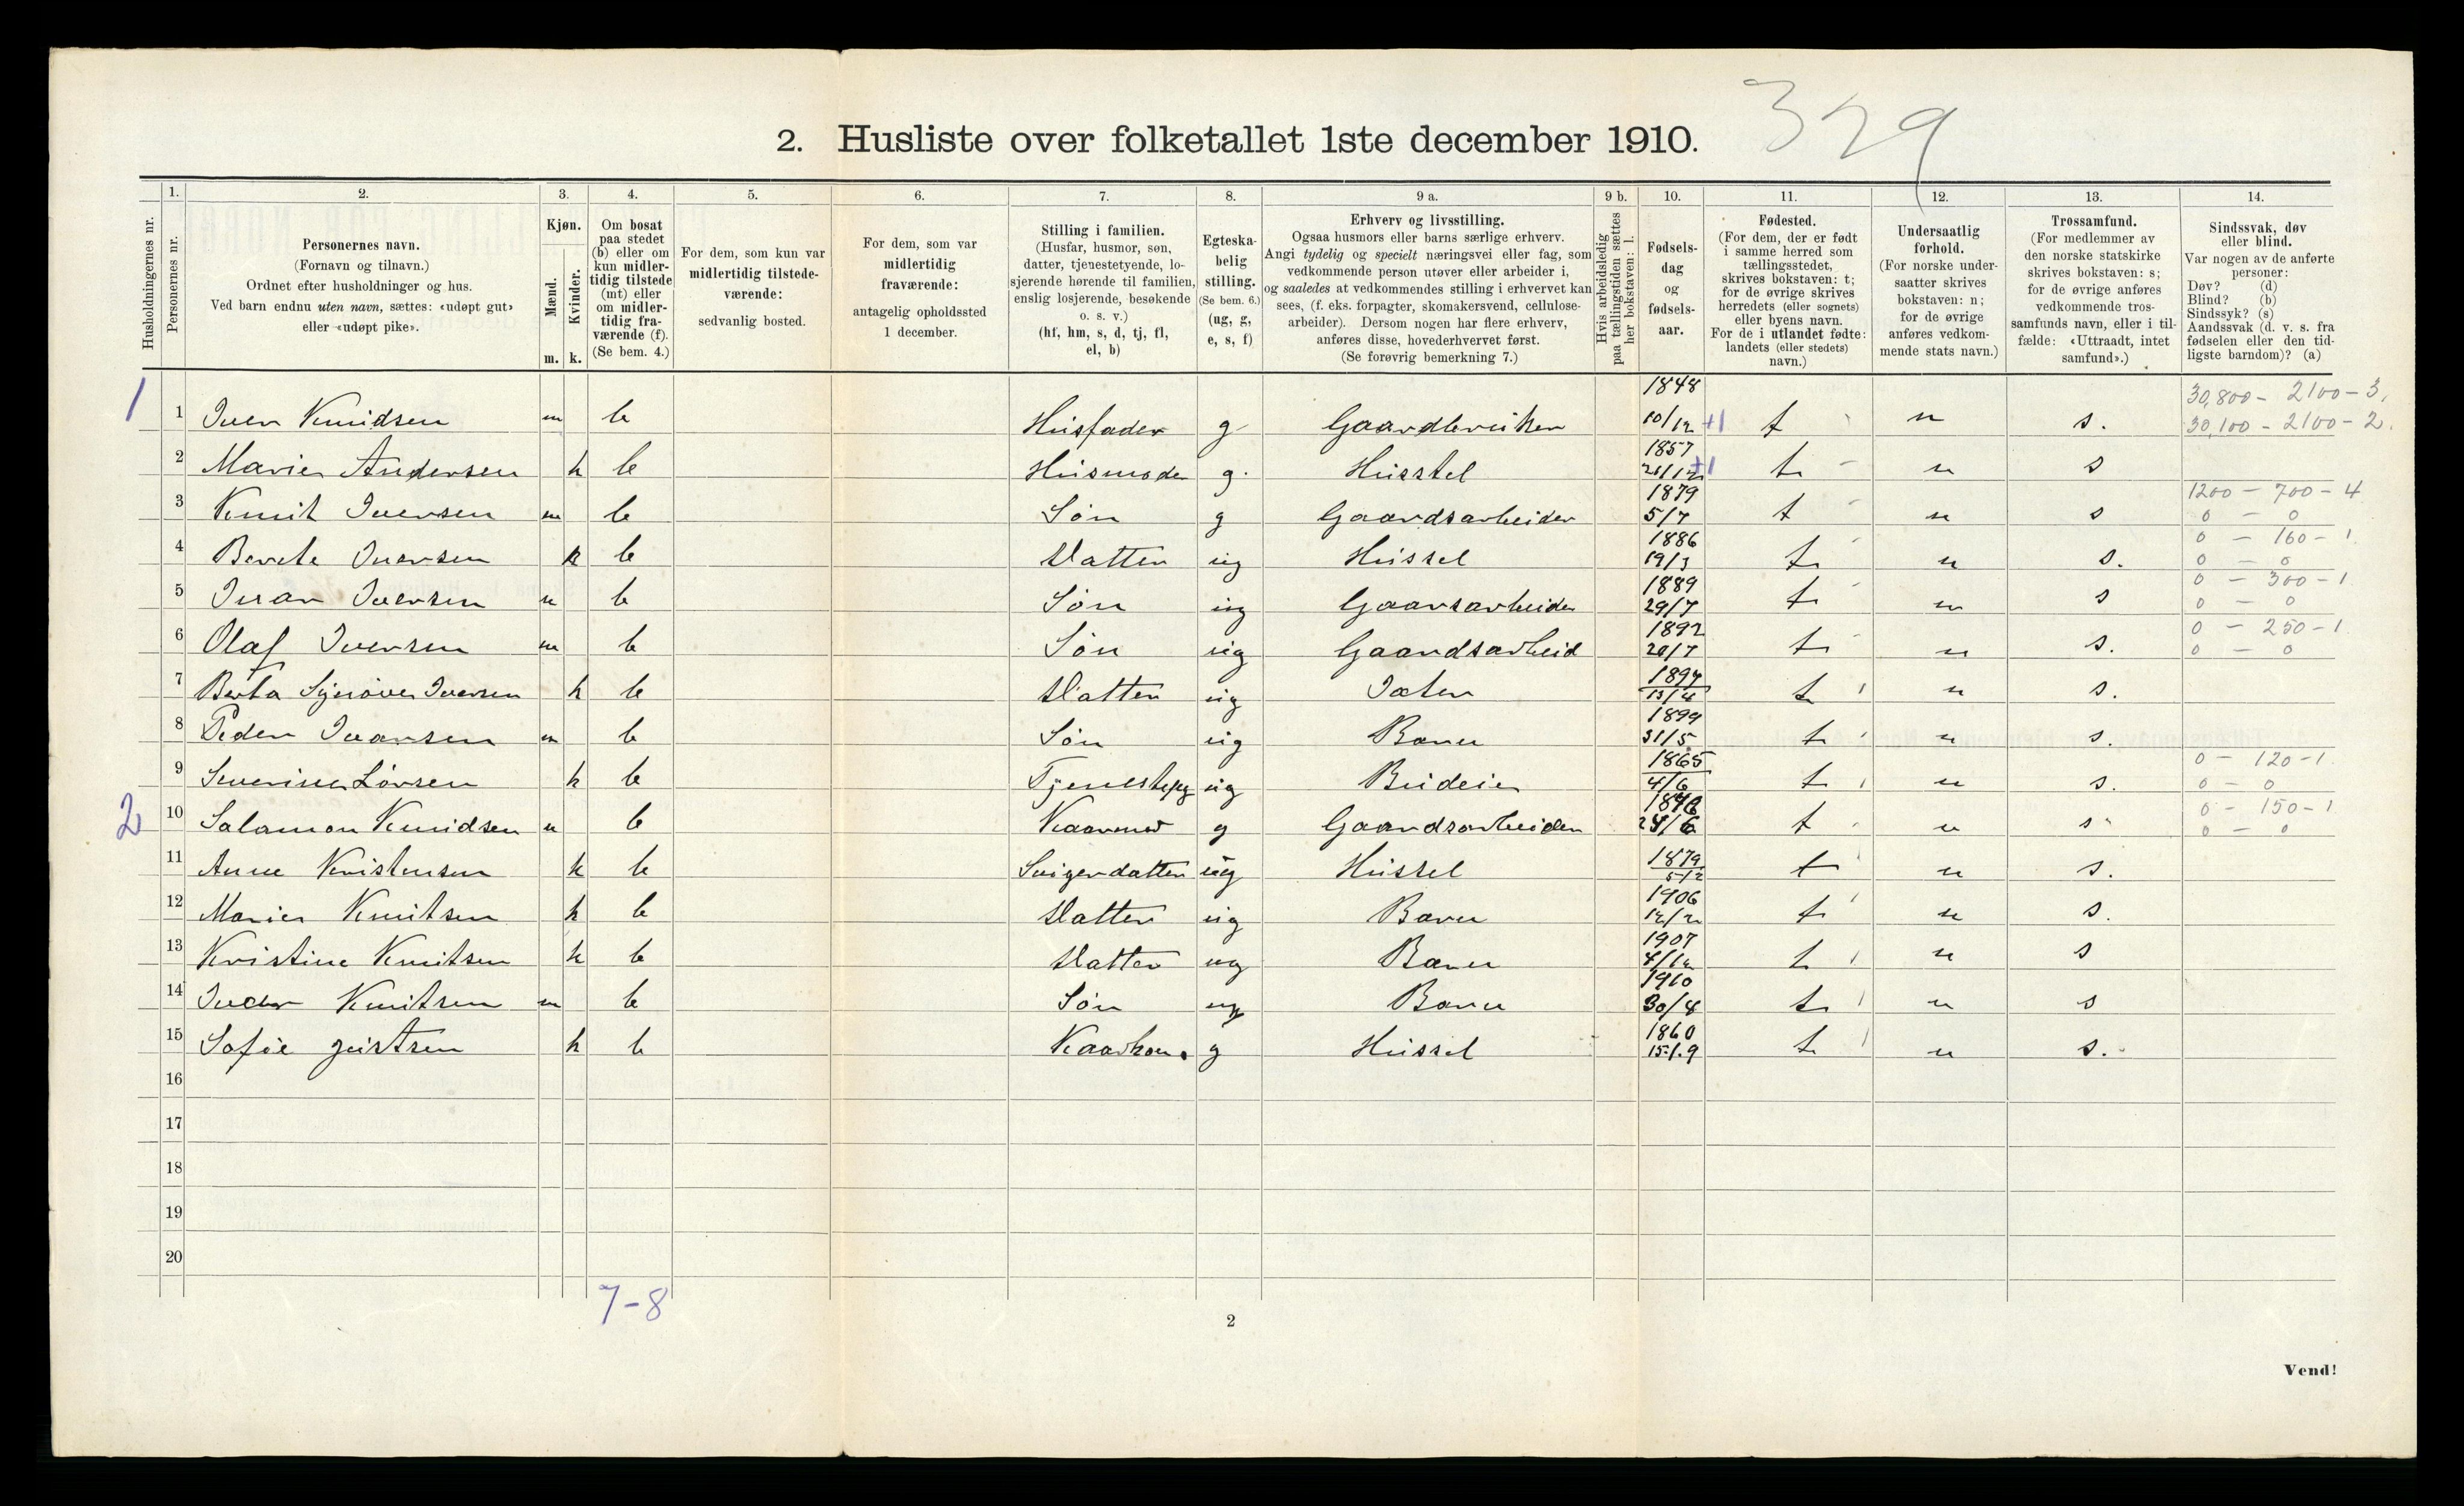 329
2. Husliste over folketallet 1ste december 1910.
1. 2. 3. 4. 5. 6. 7. 8. 9 a. 9 b. 10. 11. 12. 13. 14.
Husholdningernes nr.
Personernes nr.
Personernes navn.
(Fornavn og tilnavn.)
Ordnet efter husholdninger og hus.
Ved barn endnu uten navn, sættes: «udøpt gut»
eller «udøpt pike».
Kjøn.
Mænd.
Kvinder.
m. k.
Om bosat
paa stedet
(b) eller om
kun midler-
tidig tilstede
(mt) eller
om midler-
tidig fra-
værende (f).
(Se bem. 4.)
For dem, som kun var
midlertidig tilstede-
værende:
sedvanlig bosted.
For dem, som var
midlertidig
fraværende:
antagelig opholdssted
1 december.
Stilling i familien.
(Husfar, husmor, søn,
datter, tjenestetyende, lo-
sjerende hørende til familien,
enslig losjerende, besøkende
o. s. v.)
(hf, hm, s, d, tj, fl,
el, b)
Egteska-
belig
stilling.
(Se bem. 6.)
(ug, g,
e, s, f)
Erhverv og livsstilling.
Ogsaa husmors eller barns særlige erhverv.
Angi tydelig og specielt næringsvei eller fag, som
vedkommende person utøver eller arbeider i,
og saaledes at vedkommendes stilling i erhvervet kan
sees, (f. eks. forpagter, skomakersvend, cellulose-
arbeider). Dersom nogen har flere erhverv,
anføres disse, hovederhvervet først.
(Se forøvrig bemerkning 7.)
Hvis arbeidsledig
paa tællingstiden sættes
her bokstaven: l.
Fødsels-
dag
og
fødsels-
aar.
Fødested.
(For dem, der er født
i samme herred som
tællingsstedet,
skrives bokstaven: t;
for de øvrige skrives
herredets (eller sognets)
eller byens navn.
For de i utlandet fødte:
landets (eller stedets)
navn.)
Undersaatlig
forhold.
(For norske under-
saatter skrives
bokstaven: n;
for de øvrige
anføres vedkom-
mende stats navn.)
Trossamfund.
(For medlemmer av
den norske statskirke
skrives bokstaven: s;
for de øvrige anføres
vedkommende tros-
samfunds navn, eller i til-
fælde: «Uttraadt, intet
samfund».)
Sindssvak, døv
eller blind.
Var nogen av de anførte
personer:
Døv? (d)
Blind? (b)
Sindssyk? (s)
Aandssvak (d. v. s. fra
fødselen eller den tid-
ligste barndom)? (a)
1 1 Iver Knudsen m b Husfader g Gaardbruiker 1848 10/12 +1 t n s. 30,800 - 2100 - 3. 30,100 - 2100 - 2.
2 Marie Andersen k b Husmoder g. Husstel 1857 21/12 +1 t n s
3 Knut Iversen m b Søn g Gaardsarbeider 1879 5/7 t n s 1200 - 700 - 4 0 - 0
4 Berete Iversen k b Datter ug Hussel 1886 19/3 t n s. 0 - 160 - 1. 0 - 0
5 Ivar Iversen m b Søn ug Gaarsarbeider 1889 29/7 t n s 0 - 300 - 1 0 - 0
6 Olaf Iversen m b Søn ug Gaardsarbeid 1892 20/7 t n s. 0 - 250 - 1 0 - 0
7 Berta Synøve Iversen k b Datter ug 1894 13/4 t n s.
8 Peder Ivarsen m b Søn ug Barn 1899 31/5 t n s.
9 Severine Larsen k b ug Budeie 1865 4/6 t n s. 0 - 120 - 1. 0 - 0
2 10 Salamon Knudsen m b Kaarmad g Gaardsarbeider 24/6 t n s 0 - 150 - 1 0 - 0
11 Anne Kristensen k b Svigerdatter ug Hussel 1879 5/2 t n s.
12 Marie Knutsen k b Datter ug Barn 1906 12/2 t n s.
13 Kristine Knutsen k b Datter ug Barn 1907 4/12 t n s
14 Iver Knutsen m b Søn ug Barn 1910 30/4 t n s
15 Sofie k b Kaarkone g Hussel 1860 15/9 t n s.
16
17
18
19
20
7-8
2
Vend!